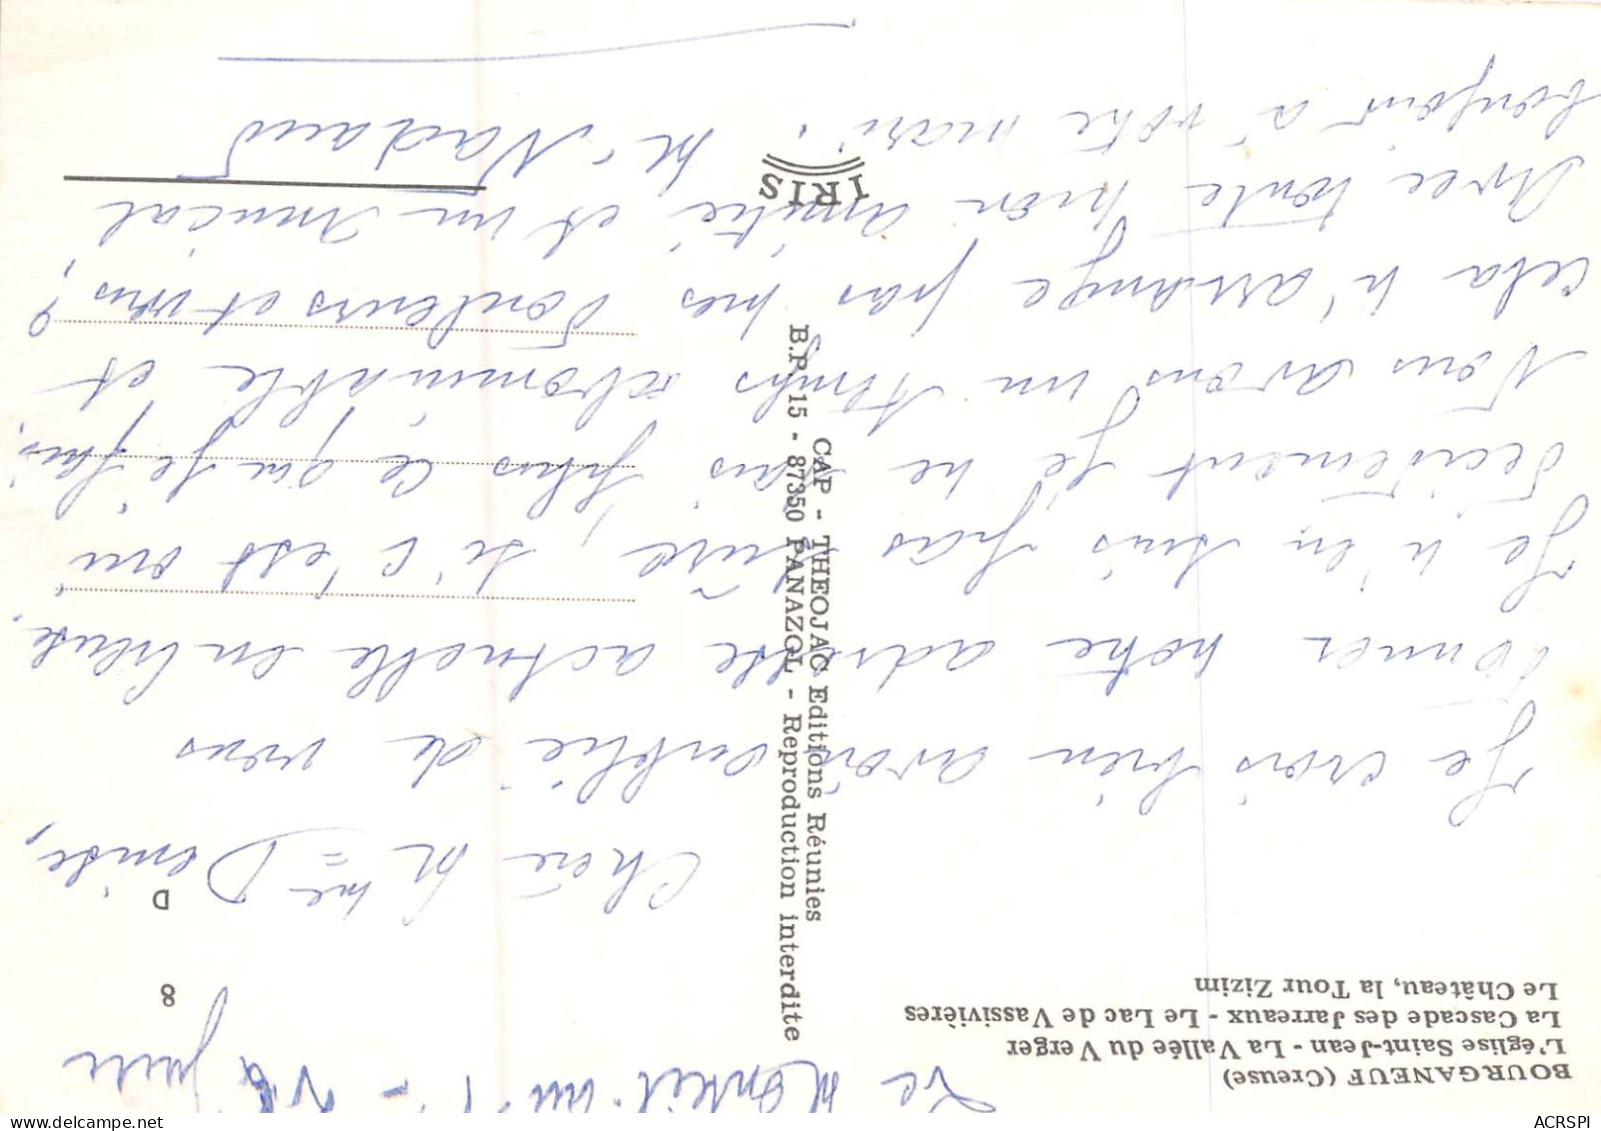 BOURGANEUF (Creuse)
L'église Saint-Jean - La Vallée du Verger
La Cascade des Jarreaux - Le Lac de Vassivières
Le Château, la Tour Zizim
Le juin
8
D
Chère Mme Denise,
Je crois bien avoir oublié de vous
donner notre adresse actuelle en Creuse.
Je n'en suis pas sûre, si c'est oui
décidément je ne sais plus ce que je fais.
Nous avons un temps abominable et
cela n'arrange pas mes douleurs et vous ?
Avec toute mon amitié et un amical
bonjour à votre mari.
M. Nadaud
CAP - THEOJAC Editions Réunies
B.P. 15 - 87350 PANAZOL - Reproduction interdite
IRIS
ACRSPI